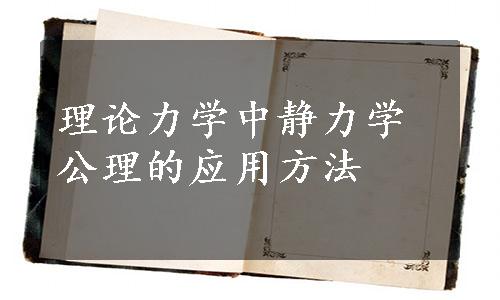 理论力学中静力学
公理的应用方法